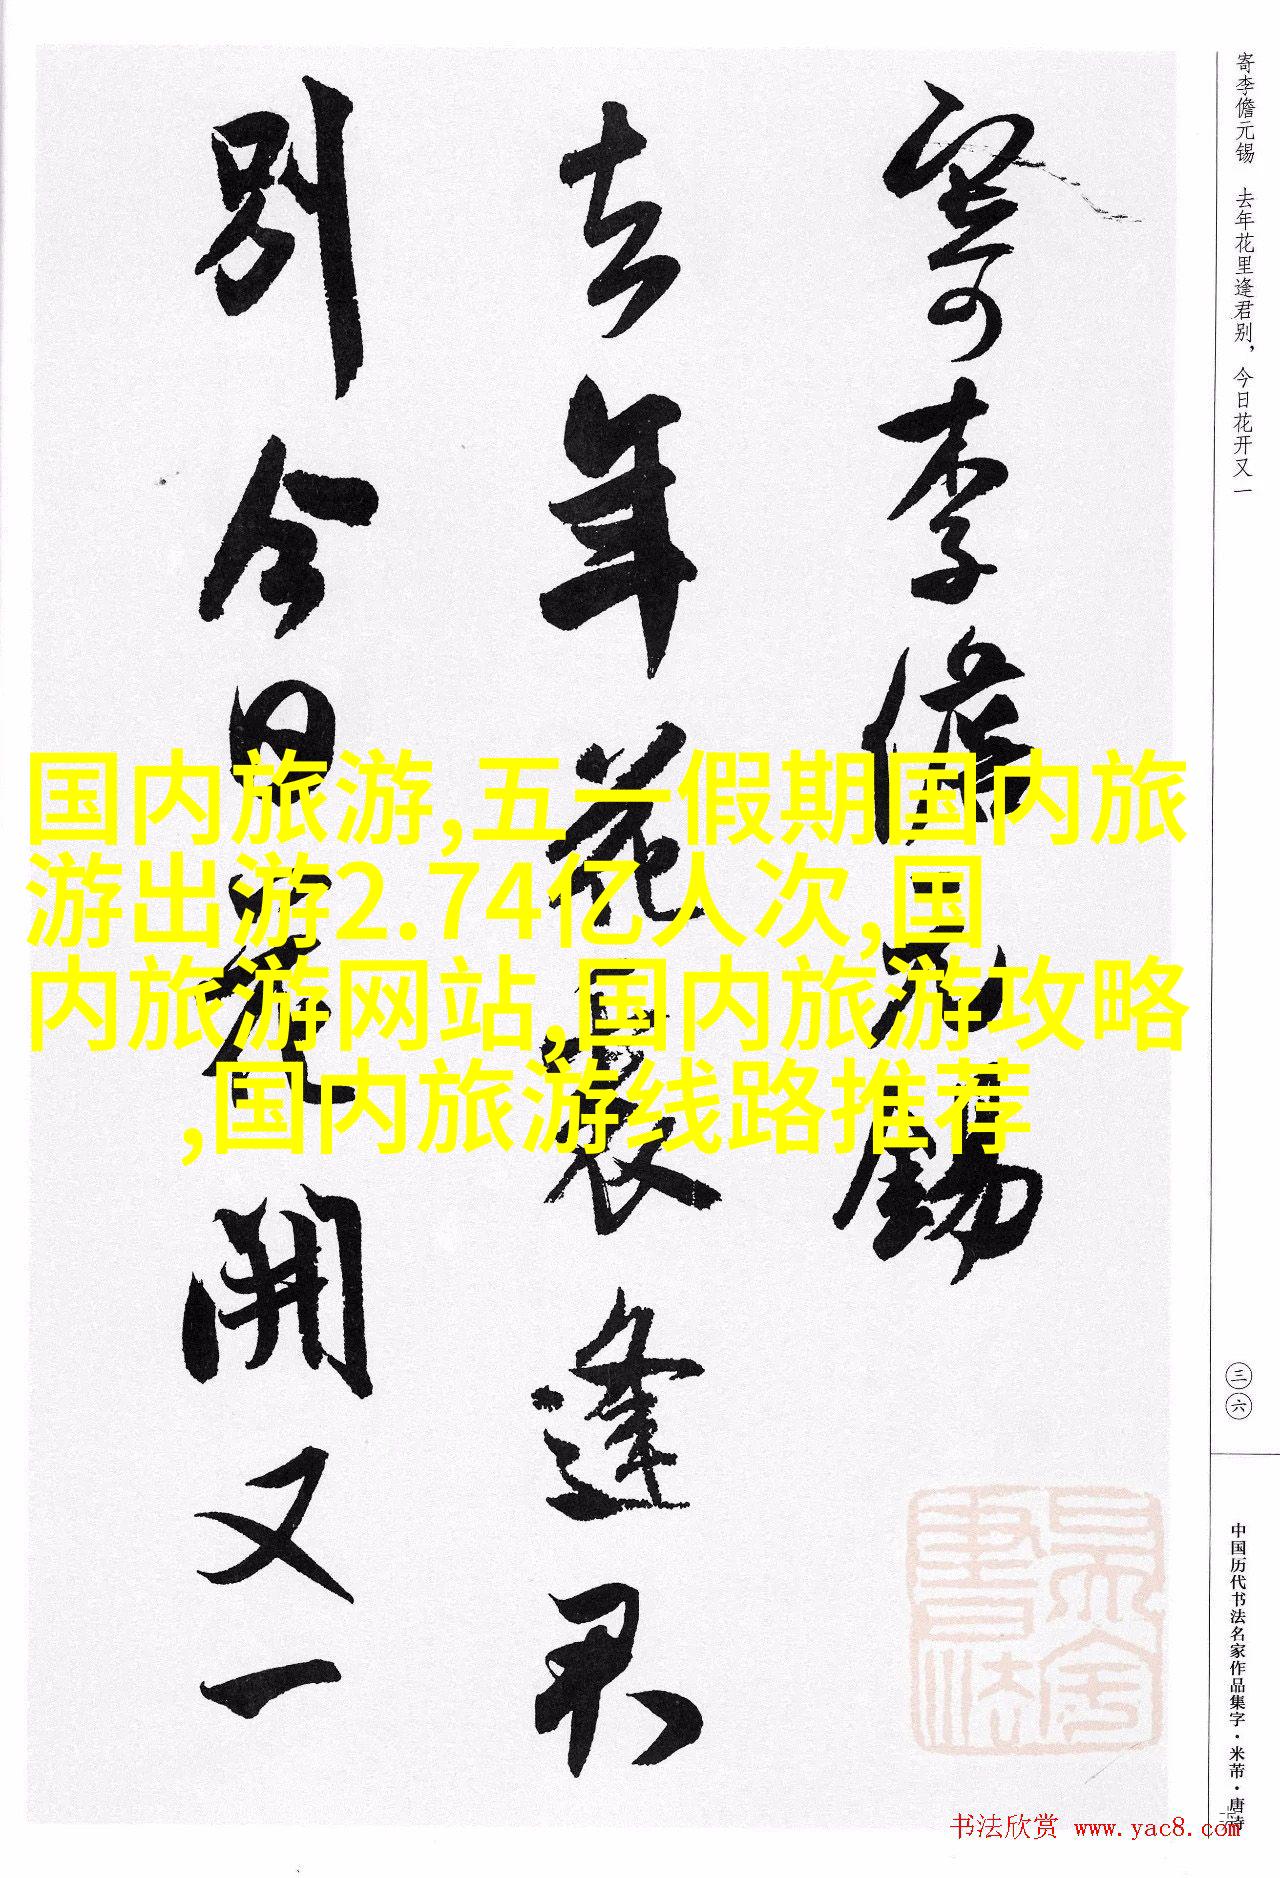 寄李儋元锡 去年花里逢君别，今日花开又一
寄李儋元錫
去年花裏逢君
別今日花開又一
国内旅游,五一假期国内旅
游出游2.74亿人次,国
内旅游网站,国内旅游攻略
,国内旅游线路推荐
三六
中国历代书法名家作品集字·米芾·唐诗
书法欣赏 www.yac8.com